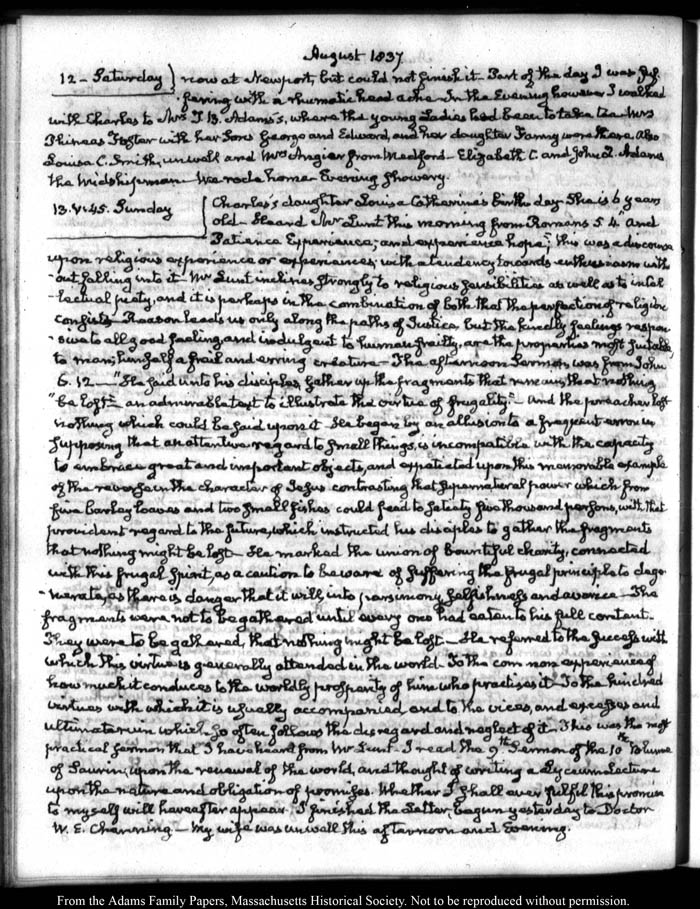 August 1837.
12 - Saturday } now at Newport, but could not finish it - Part of the day I was suf-
fering with a rhumatic head ache - In the Evening however I walked
with Charles to Mrs T. B. Adams's, where the young Ladies had been to take tea - Mrs
Phineas Foster with her Sons George and Edward, and her daughter Fanny were there. Also
Louisa C. Smith, unwell and Mrs Angier from Medford - Elizabeth C. and John Q. Adams
the Midshipman - We rode home - Evening showery.
13. V:45. Sunday } Charles's daughter Louisa Catherine's birth day. She is 6 years
old - Heard Mr Lunt this morning from Romans 5. 4. And
Patience Experience; and experience hope; this was a discourse
upon religious experience or experiences; with a tendency towards enthusiasm with
-out falling into it - Mr Lunt inclines strongly to religious sensibilities as well as to intel
-lectual piety, and it is perhaps in the combination of both that the perfection of religion
consists - Reason leads us only along the paths of Justice, but the kindly feelings respon-
-sive to all good feeling, and indulgent to human frailty, are the properties most suitable
to man, himself a frail and erring creature - The afternoon Sermon was from John
6. 12 - "He said unto his disciples, Gather up the fragments that remain, that nothing
"be lost" - an admirable text to illustrate the virtue of frugality - And the preacher left
nothing which could be said upon it - He began by an allusion to a frequent error in
supposing that an attentive regard to small things, is incompatible with the capacity
to embrace great and important objects, and expatiated upon this memorable example
of the reverse in the character of Jesus contrasting that supernatural power which from
five barley loaves and two small fishes could feed to satiety five thousand persons, with that
provident regard to the future, which instructed his disciples to gather the fragments
that nothing might be lost - He marked the union of bountiful charity, connected
with this frugal spirit, as a caution to beware of suffering the frugal principle to dege
-nerate, as there is danger that it will into parsimony, selfishness and avarice - The
fragments were not to be gathered until every one had eaten to his full content.
They were to be gathered, that nothing might be lost - He referred to the success with
which this virtue is generally attended in the world. To the common experience of
how much it conduces to the worldly prosperity of him who practises it - To the kindred
virtues with which it is usually accompanied and to the vices, and excesses and
ultimate ruin which so often follows the disregard and neglect of it - This was the most
practical sermon that I have heard from Mr Lunt - I read the 9th Sermon of the 10th Volume
of Saurin, upon the renewal of the world, and thought of writing a Lyceum Lecture
upon the nature and obligation of promises. Whether I shall ever fulfil this promise
to myself will hereafter appear. I finished the Letter, begun yesterday to Doctor
W. E. Channing - My wife was unwell this afternoon and Evening.
From the Adams Family Papers, Massachusetts Historical Society. Not to be reproduced without permission.